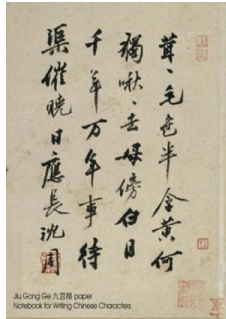 茸〻毛色半含黄何
獨啾〻去母傍白日
千年万年事待
渠催曉日應長沈周
Jiu Gong Ge 九宫格 paper
Notebook for Writing Chinese Charactes